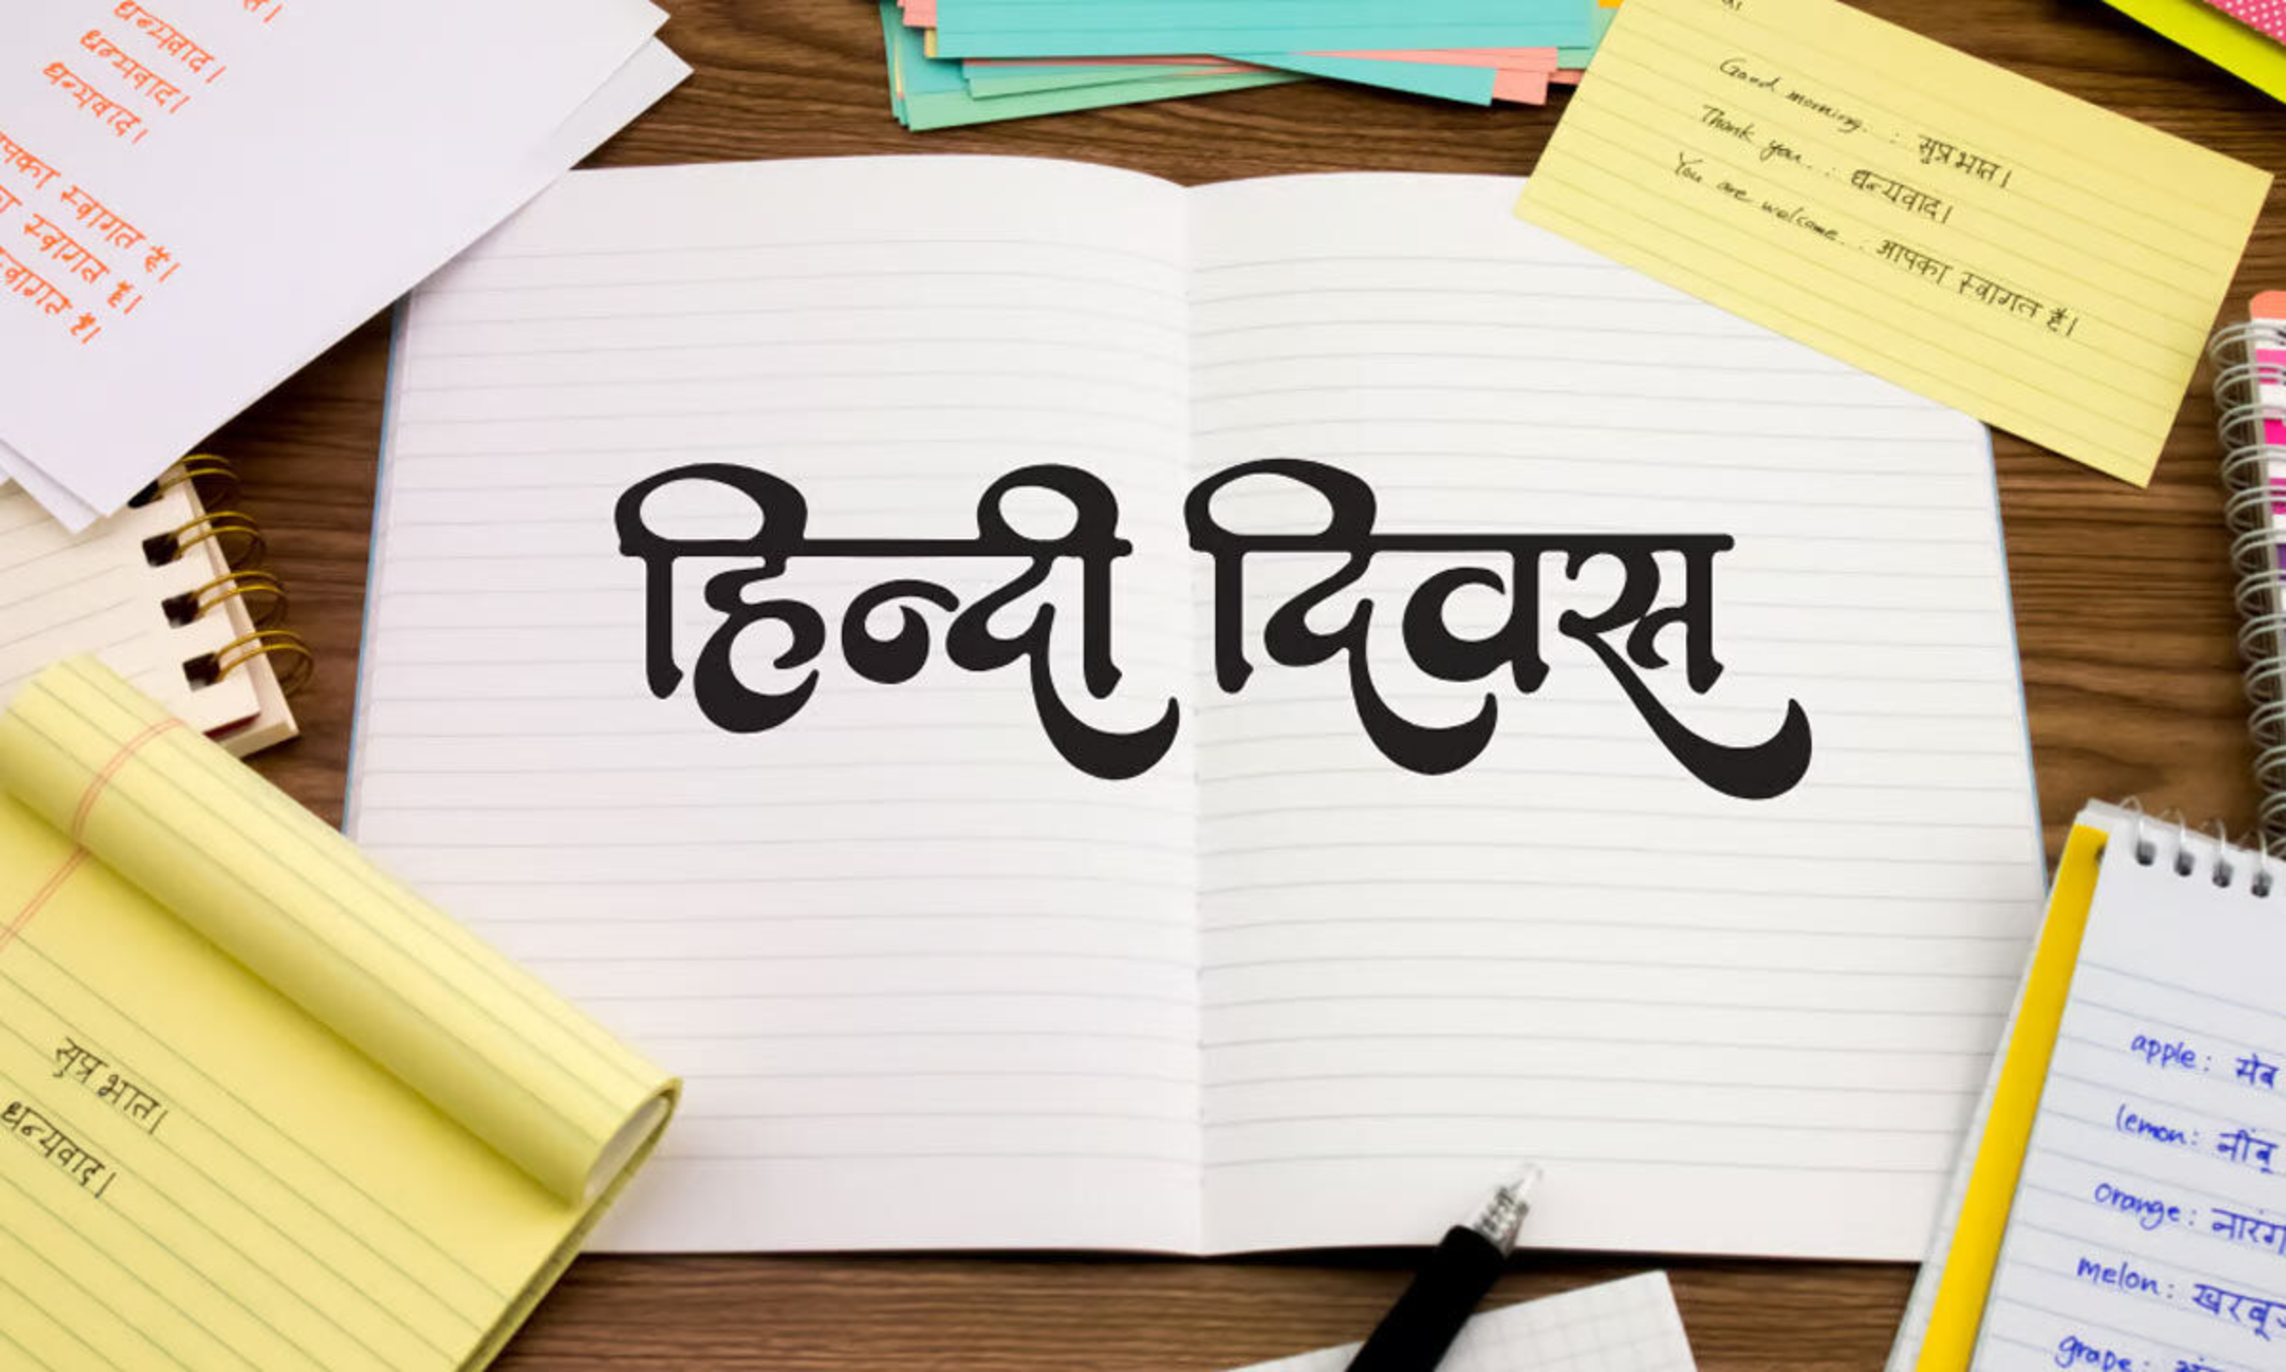 धन्यवाद।
धन्यवाद।
धन्यवाद।
स्वागत है।
स्वागत है।
स्वागत है।
Good morning. : सुप्रभात।
Thank you. : धन्यवाद।
You are welcome. : आपका स्वागत है।
हिन्दी दिवस
सुप्रभात।
धन्यवाद।
apple: सेब
lemon: नींबू
orange: नारंग
melon: खरबू
grape: